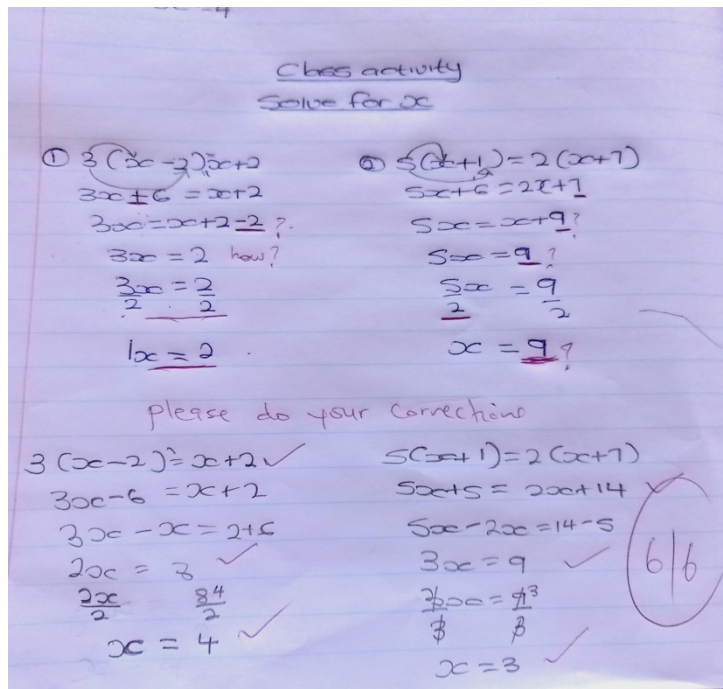 Class activity
Solve for x
① 3(x-2)=x+2
3x±6 = x+2
3x=x+2-2 ?
3x = 2 how?
3x/2 = 2/2
1x = 2
② 5(x+1) = 2(x+7)
5x+6 = 2x+7
5x = x+9?
5x = 9 ?
5x/2 = 9/2
x = 9 ?
please do your corrections
3(x-2)=x+2 ✓
3x-6 = x+2
3x - x = 2+6
2x = 8 ✓
2x/2 84/2
x = 4 ✓
5(x+1) = 2(x+7)
5x+5 = 2x+14 ✓
5x-2x=14-5
3x = 9 ✓
3x/3 = 9 3/3
x = 3 ✓
6/6